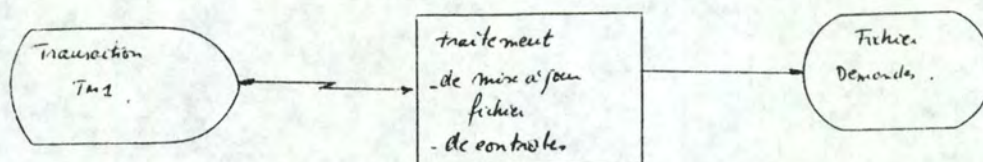 Transaction
Tm1.
traitement
- de mise à jour
fichier
- de controles
Fichier
Demandes.